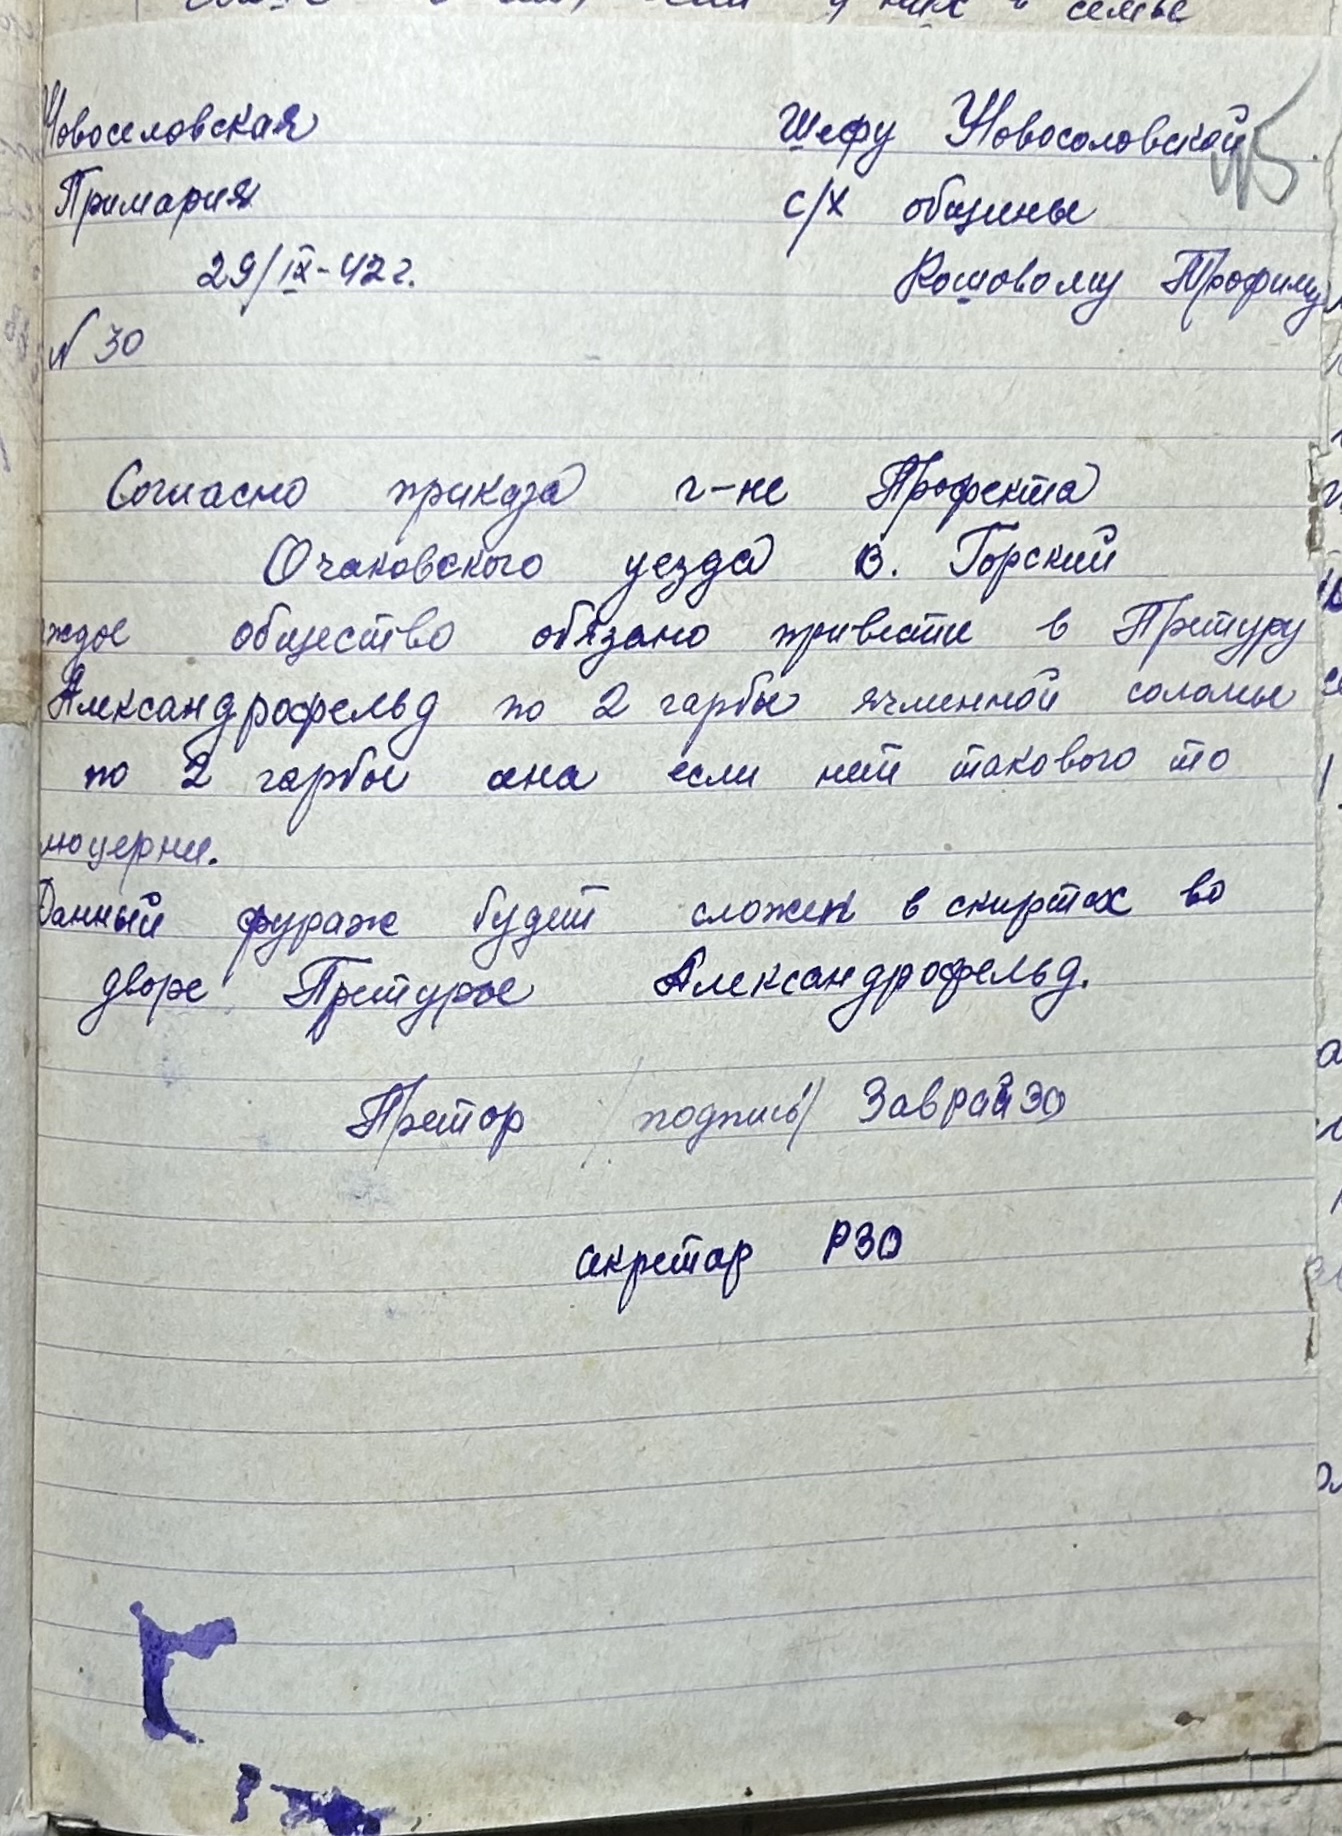 семье
Новоселовская
Шефу Новосоловской
Примария
с/х общины
29/IX-42 г.
Кошовому Трофиму
№ 30
Согласно приказа г-не Профекта
Очаковского уезда В. Горский
аждое общество обязано привести в Претуру
Александрофельд по 2 гарбы ячменной соломы
по 2 гарбы сена если нет такового то
люцерни.
Данный фураж будет сложен в скиртах во
дворе Претуры Александрофельд.
Претор /подпись/ Заврайзо
Секретар РЗО